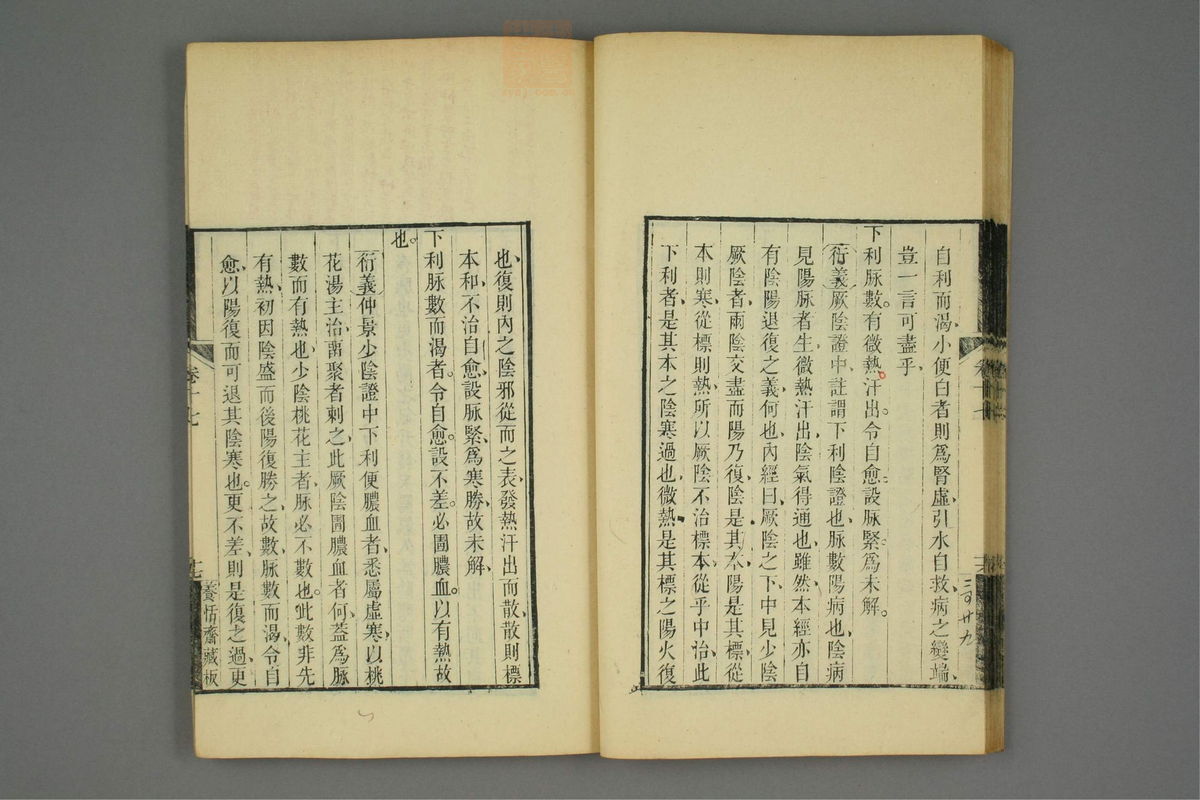 自利而渴、小便白者則爲腎虛、引水自救病之變端、
豈一言可盡乎、
下利脉數。有微熱。汗出。令自愈。設脉緊。爲未解。
衍義厥陰證中、註謂下利陰證也、脉數陽病也、陰病
見陽脉者生、微熱汗出、陰氣得通也、雖然本經亦自
有陰陽退復之義、何也、內經曰、厥陰之下中見少陰
厥陰者、兩陰交盡而陽乃復、陰是其本、陽是其標、從
本則寒、從標則熱、所以厥陰不治標本、從乎中治、此
下利者、是其本之陰寒過也、微熱是其標之陽火復
卷十七
也、復則內之陰邪從而之表、發熱汗出而散、散則標
本和、不治自愈、設脉緊、爲寒勝、故未解、
下利脉數而渴者。令自愈。設不差。必圊膿血。以有熱故
也。
衍義仲景少陰證中下利便膿血者、悉屬虛寒、以桃
花湯主治、畱聚者刺之、此厥陰圊膿血者何、葢爲脉
數而有熱也、少陰桃花主者、脉必不數也。此數非先
有熱、初因陰盛而後陽復勝之、故數、脉數而渴、令自
愈、以陽復而可退其陰寒也。更不差、則是復之過、更
卷十七
養恬齋藏板